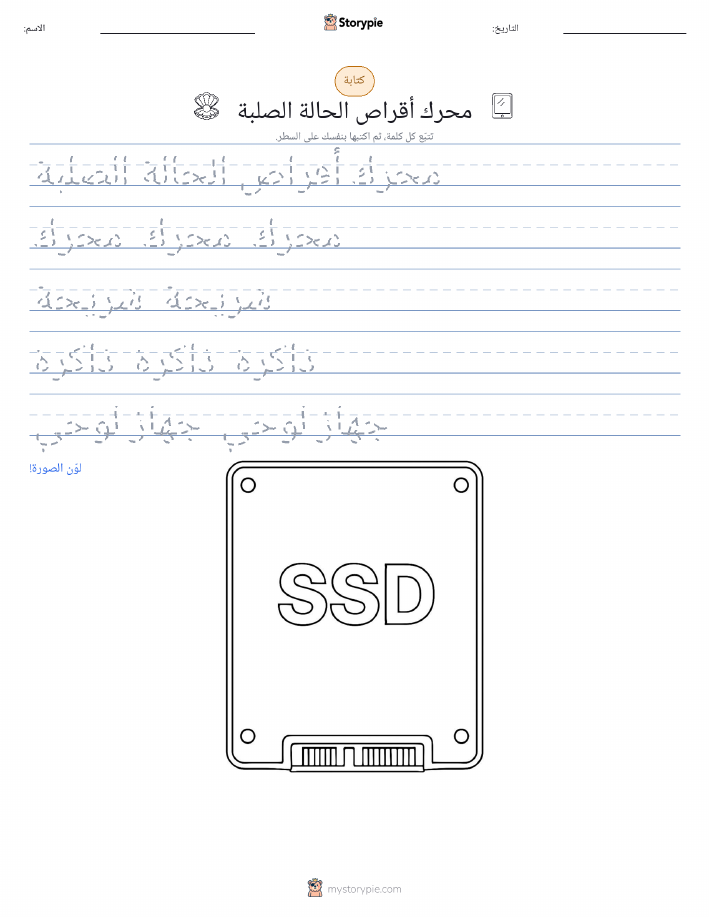 الاسم:
Storypie
التاريخ:
كتابة
محرك أقراص الحالة الصلبة
تتبّع كل كلمة، ثم اكتبها بنفسك على السطر.
محرك أقراص الحالة الصلبة
محرك محرك محرك
شريحة شريحة
ذاكرة ذاكرة ذاكرة
جهاز لوحي جهاز لوحي
لوّن الصورة!
SSD
mystorypie.com